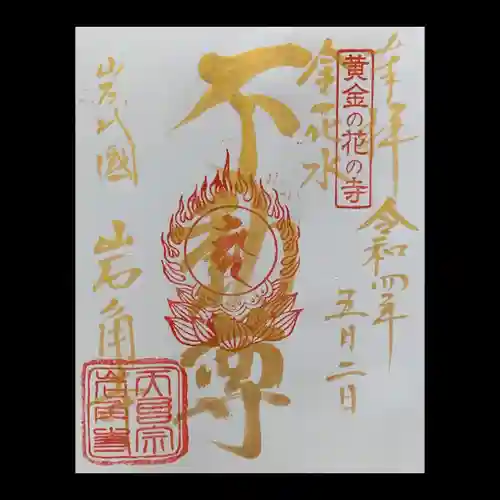 奉拝
令和四年
五月二日
黄金の花の寺
金花水
不動尊
岩代國
岩角寺
天台宗
岩角寺